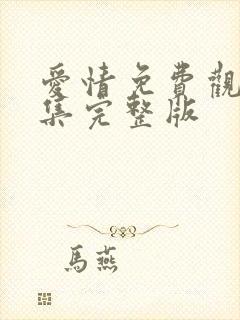 愛情免費觀
集完整版
馬燕